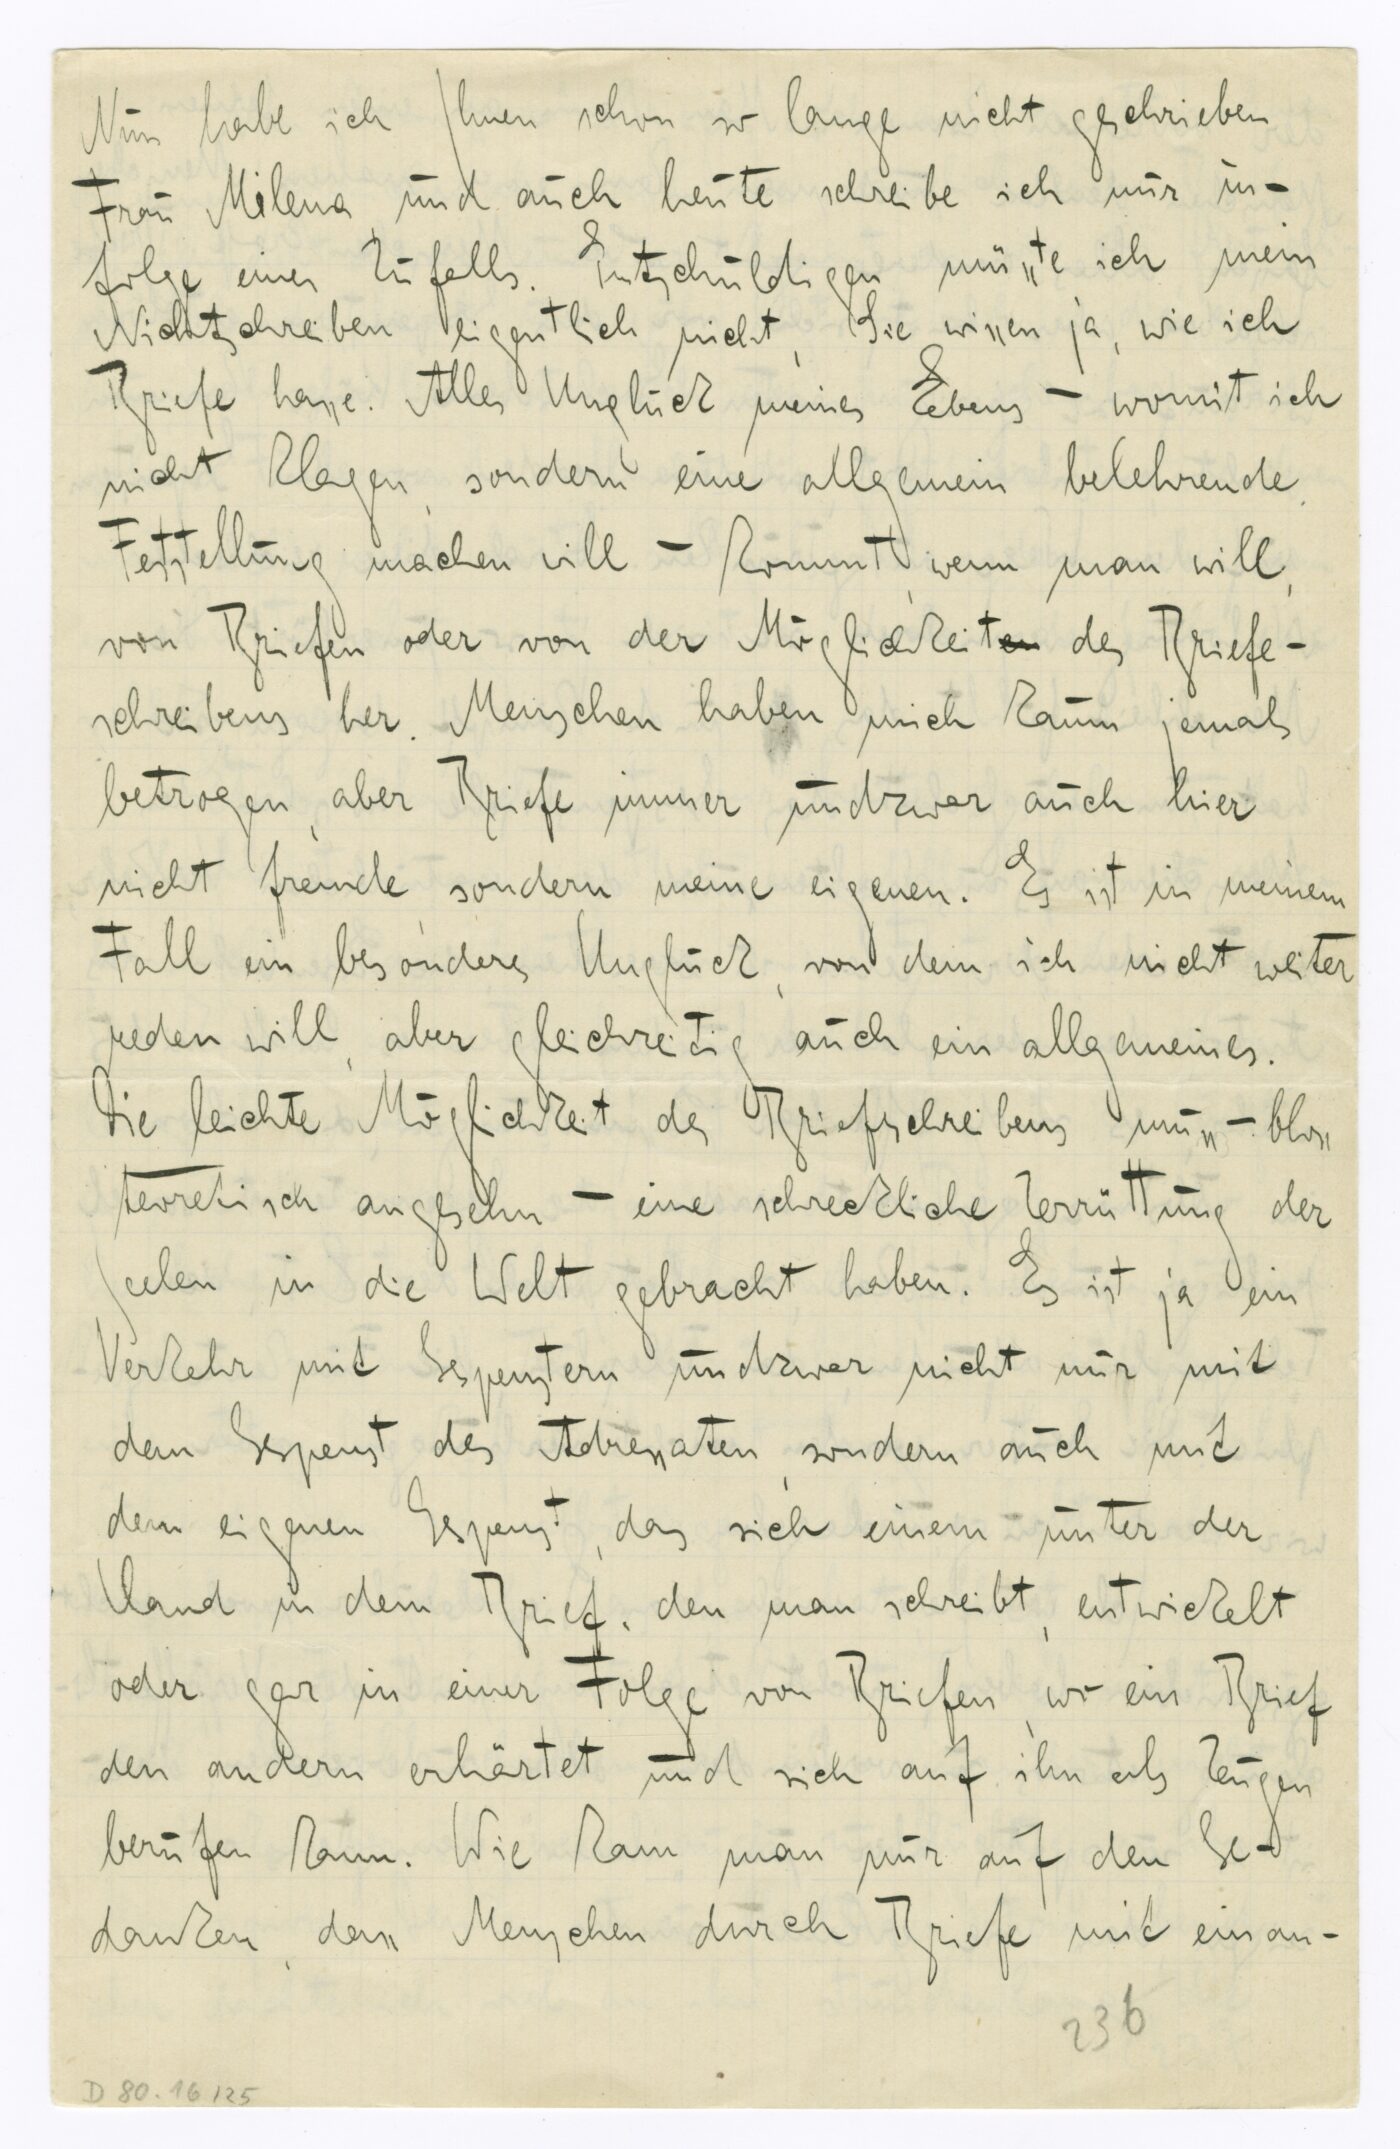 Nun habe ich Ihnen schon so lange nicht geschrieben
Frau Milena, und auch heute schreibe ich nur in-
folge eines Zufalls. Entschuldigen müsste ich mein
Nichtschreiben eigentlich nicht, Sie wissen ja, wie ich
Briefe hasse. Alles Unglück meines Lebens – womit ich
nicht klagen, sondern eine allgemein belehrende
Feststellung machen will – kommt, wenn man will,
von Briefen oder von der Möglichkeiten des Briefe-
schreibens her. Menschen haben mich kaum jemals
betrogen, aber Briefe immer undzwar auch hier
nicht fremde sondern meine eigenen. Es ist in meinem
Fall ein besonderes Unglück, von dem ich nicht weiter
reden will, aber gleichzeitig auch ein allgemeines.
Die leichte Möglichkeit des Briefschreibens muss – bloss
teoretisch angesehn – eine schreckliche Zerrüttung der
Seelen in die Welt gebracht haben. Es ist ja ein
Verkehr mit Gespenstern undzwar nicht nur mit
dem Gespenst des Adressaten, sondern auch mit
dem eigenen Gespenst, das sich einem unter der
Hand in dem Brief, den man schreibt, entwickelt
oder gar in einer Folge von Briefen, wo ein Brief
den andern erhärtet und sich auf ihn als Zeugen
berufen kann. Wie kam man nur auf den Ge-
danken, dass Menschen durch Briefe mit einan-
236
D 80.16/25